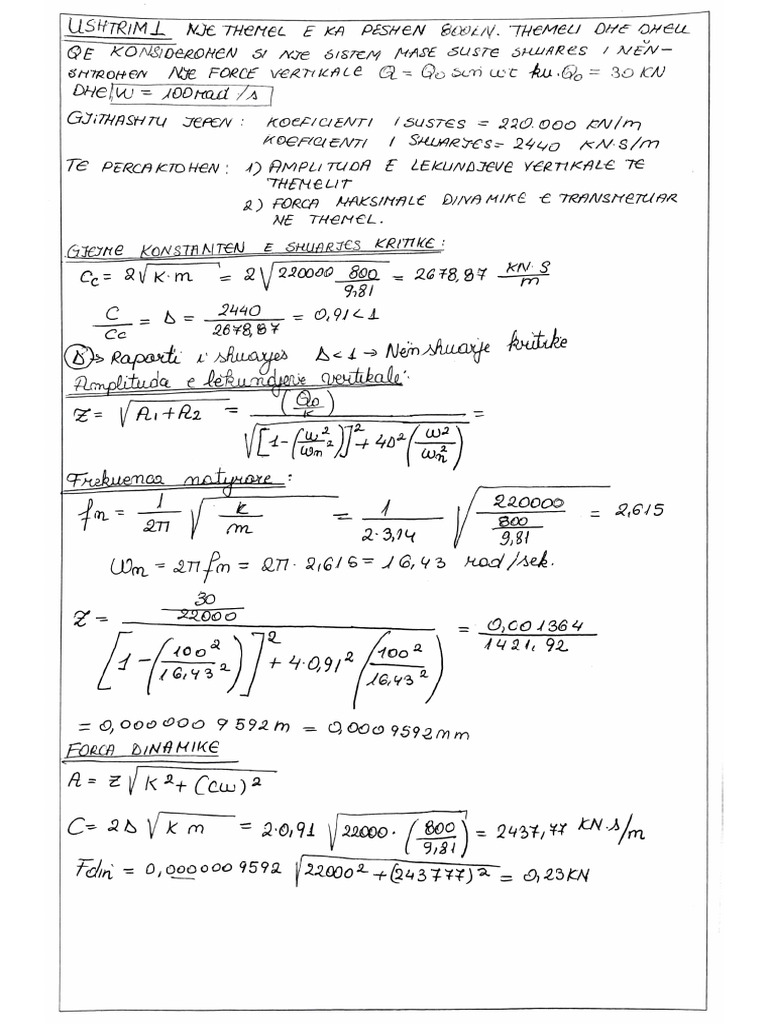 USHTRIM 1 NJE THEMEL E KA PESHEN 800KN. THEMELI DHE DHEU
QE KONSIDEROHEN SI NJE SISTEM MASE SUSTE SHUARES I NËN-
SHTROHEN NJE FORCE VERTIKALE Q = Q₀ sin ωt ku Q₀ = 30 KN
DHE W = 100 rad/s
GJITHASHTU JEPEN: KOEFICIENTI I SUSTES = 220.000 KN/m
KOEFICIENTI I SHUARJES = 2440 KN·S/m
TE PERCAKTOHEN: 1) AMPLITUDA E LEKUNDJEVE VERTIKALE TE
THEMELIT
2) FORCA MAKSIMALE DINAMIKE E TRANSMETUAR
NE THEMEL.
GJEJME KONSTANTEN E SHUARJES KRITIKE:
Cc = 2√(K·m) = 2√(220000 800/9,81) = 2678,87 KN·S/m
C/Cc = Δ = 2440/2678,87 = 0,91 < 1
Δ → Raporti i shuarjes Δ<1 → Nënshuarje kritike
Amplituda e lekundjeve vertikale:
Z = √(A₁+A₂) = (Q₀/K) / √([1-(ω²/ωn²)]² + 4Δ²(ω²/ωn²)) =
Frekuenca natyrore:
fn = 1/2π √(k/m) = 1/(2·3,14) √(220000/(800/9,81)) = 2,615
Wn = 2πfn = 2π·2,615 = 16,43 rad/sek.
Z = (30/22000) / ([1-(100²/16,43²)]² + 4·0,91²(100²/16,43²)) = 0,001364/1421,92
= 0,000000 9592 m = 0,0009592mm
FORCA DINAMIKE
A = Z√(K²+(Cω)²)
C = 2Δ√(K m) = 2·0,91 √(22000·(800/9,81)) = 2437,77 KN·S/m
Fdin = 0,0000009592 √(22000²+(243777)²) = 0,23KN